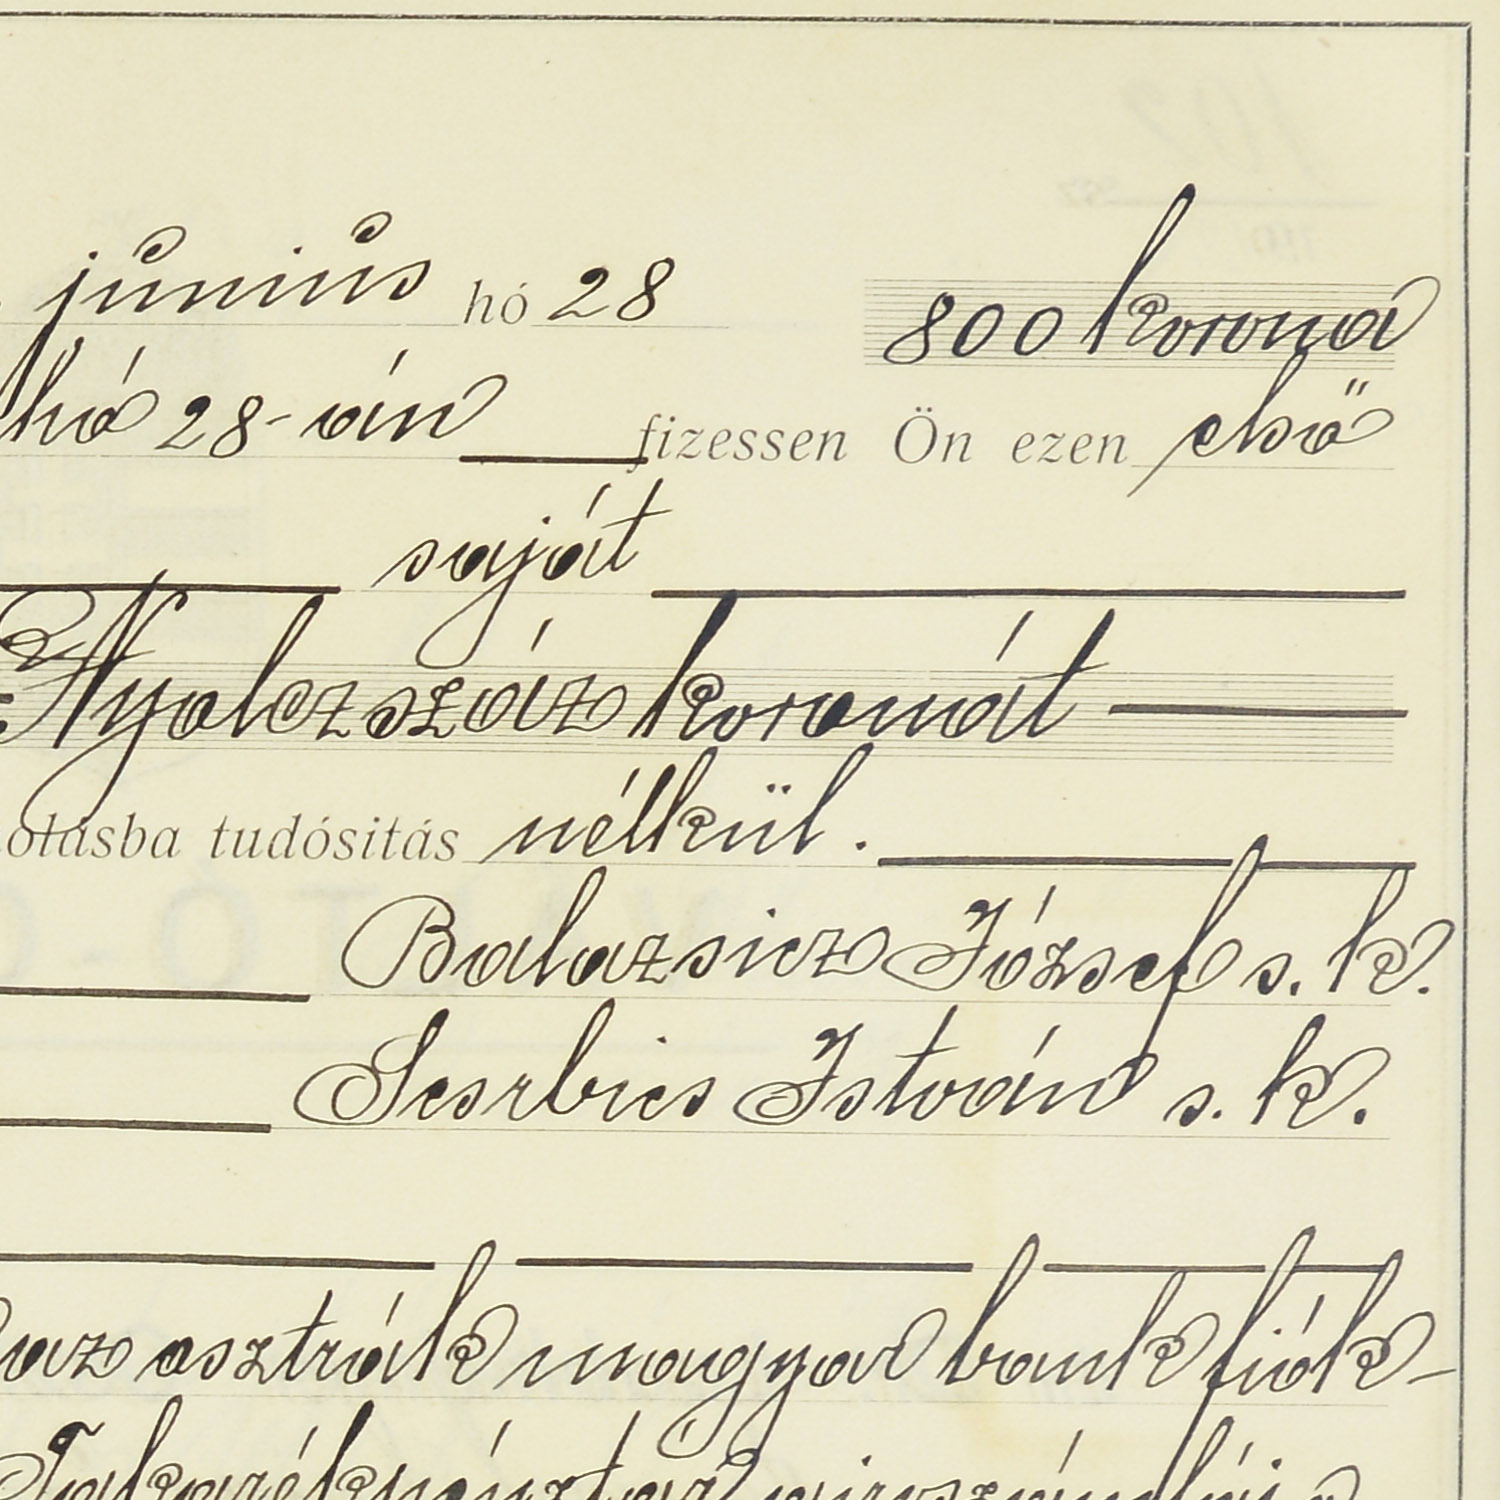 június hó 28 800 korona
hó 28-án fizessen Ön ezen első
saját
Nyolczszáz koronát
tudósitás nélkül.
Balazsicz József s. k.
Seszbics István s. k.
az osztrák magyar bank fiók-
Takarékpénztár